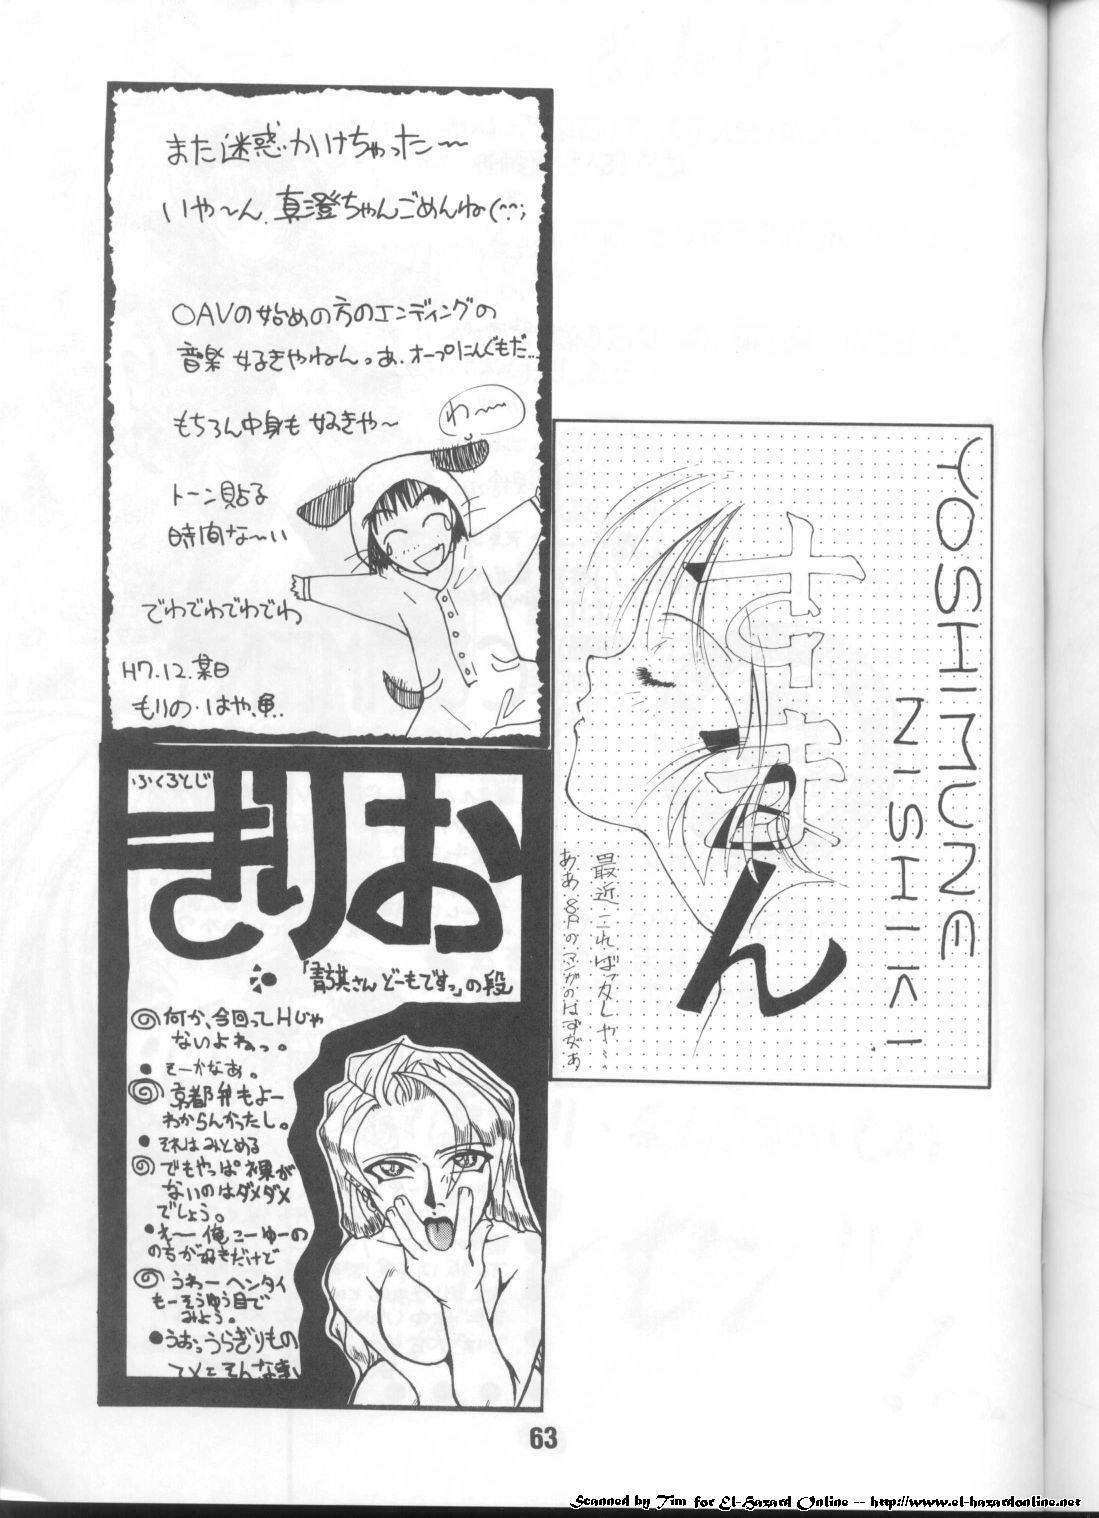 また迷惑かけちゃった〜
いや〜ん、真澄ちゃんごめんね(^^;
OAVの始めの方のエンディングの
音楽好きやねん。あ、オープにんぐもだ…
もちろん中身も好きや〜
わ〜
トーン貼る
時間な〜い
でわでわでわでわ
H7.12.某日
もりの・はや
YOSHIMUNE
NISHIKI
すまん
最近こればッカしや…。
ああ、8Pのマンガのはずが
ふくろとじ
きりお
「さんどーもですっ」の段
何か、今回ってHじゃ
ないよねっ。
●そーかなあ。
京都弁もよー
わからんかったし。
●それはみとめる
でもやっぱ裸が
ないのはダメダメ
でしょう。
●え〜俺こーゆーの
の方が好きだけど
うわーヘンタイ
もーそうゆう目で
みよう。
●うおっうらぎりもの
てめェそんな事、
63
Scanned by Tim for El-Hazard Online -- http://www.el-hazardonline.net